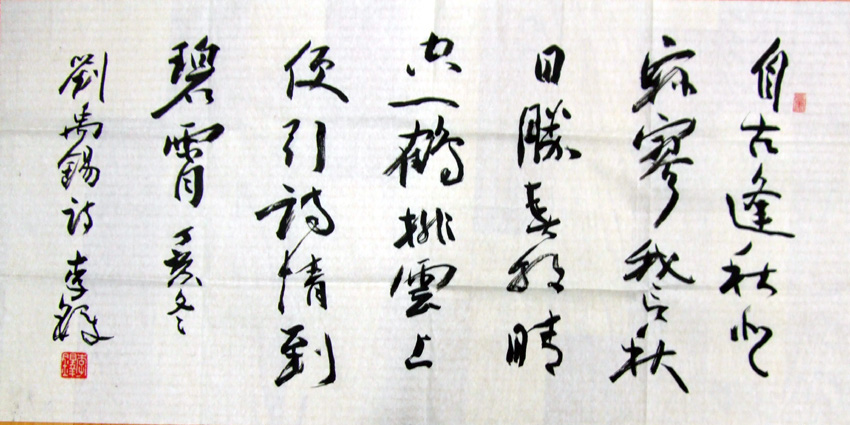 自古逢秋悲
寂寥我言秋
日勝春朝晴
空一鶴排雲上
便引詩情到
碧霄 丁亥冬
劉禹錫詩 李鐸